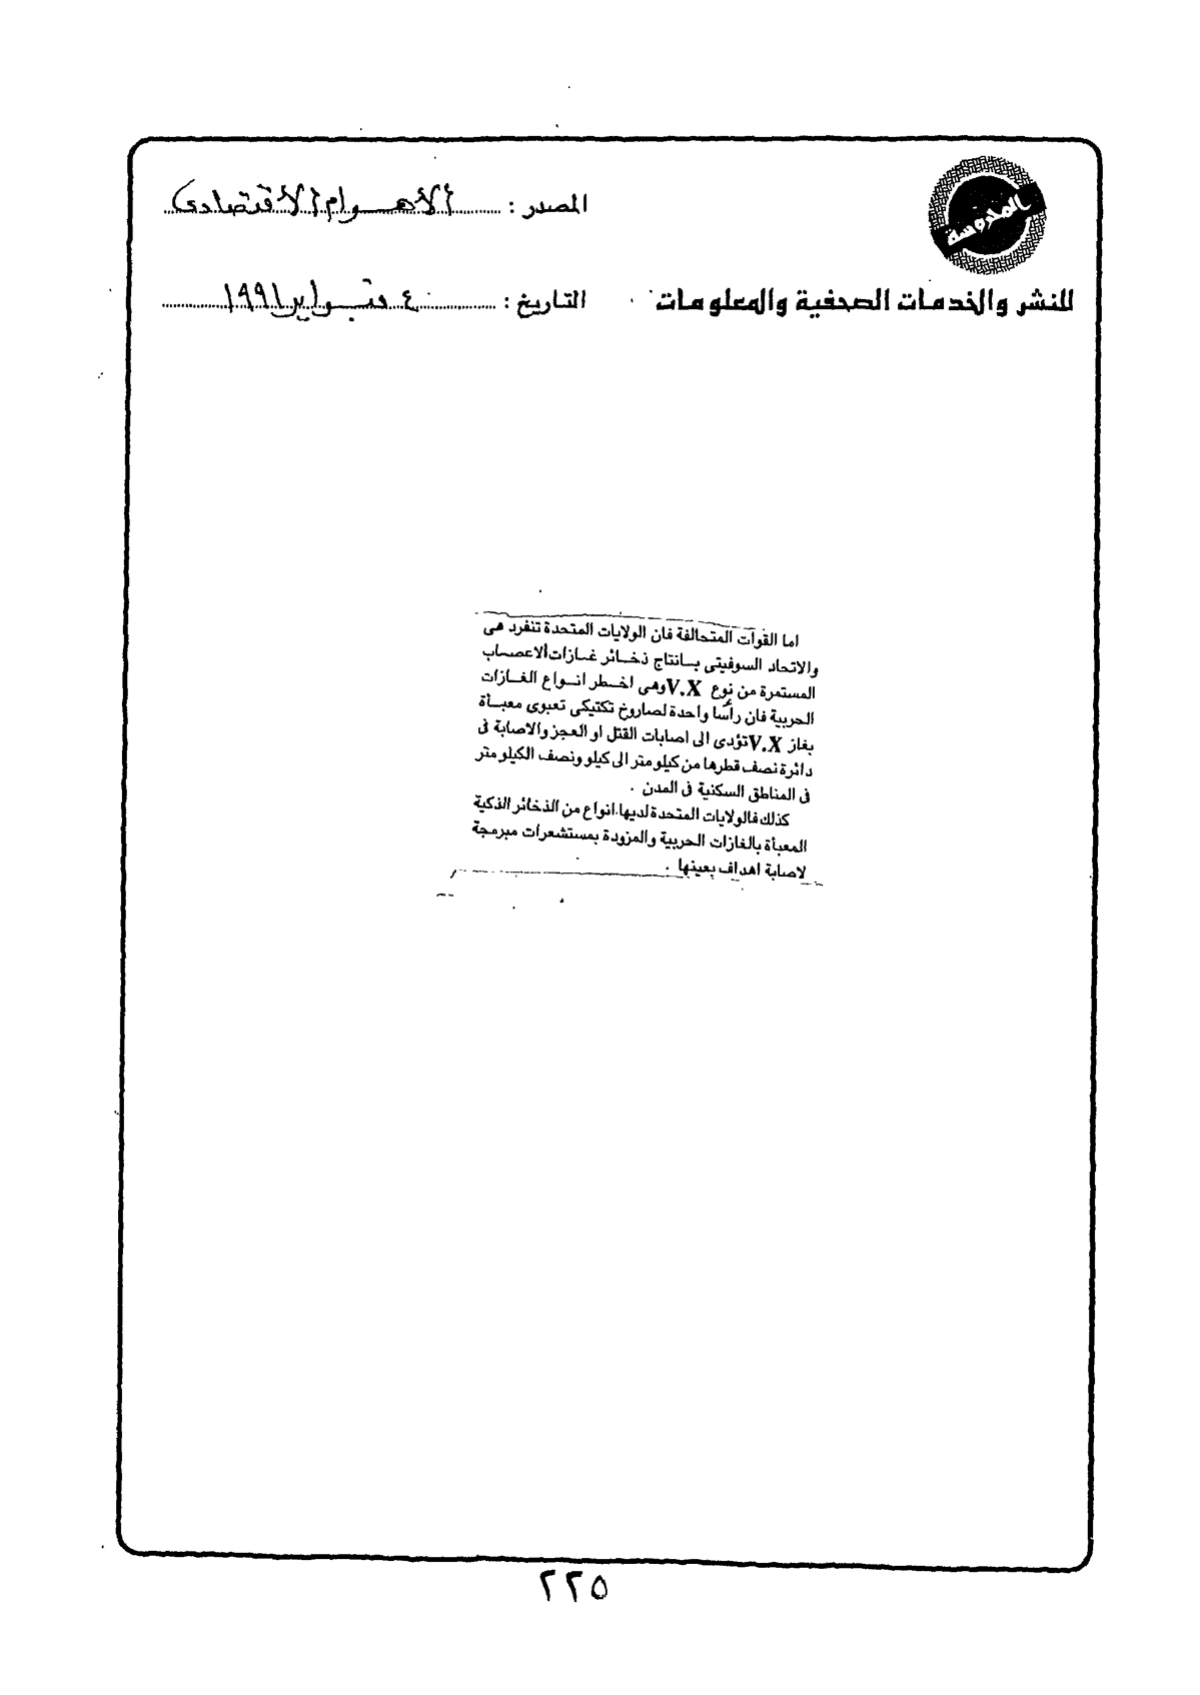 المحروسة
للنشر والخدمات الصحفية والمعلومات
المصدر : الأهرام الاقتصادى
التاريخ : ٤ فبراير ١٩٩١
اما القوات المتحالفة فان الولايات المتحدة تنفرد هى
والاتحاد السوفيتى بانتاج ذخائر غازات الاعصاب
المستمرة من نوع V.X وهى اخطر انواع الغازات
الحربية فان رأسا واحدة لصاروخ تكتيكى تعبوى معبأة
بغاز V.X تؤدى الى اصابات القتل او العجز والاصابة فى
دائرة نصف قطرها من كيلو متر الى كيلو ونصف الكيلو متر
فى المناطق السكنية فى المدن .
كذلك فالولايات المتحدة لديها انواع من الذخائر الذكية
المعبأة بالغازات الحربية والمزودة بمستشعرات مبرمجة
لاصابة اهداف بعينها .
٢٢٥